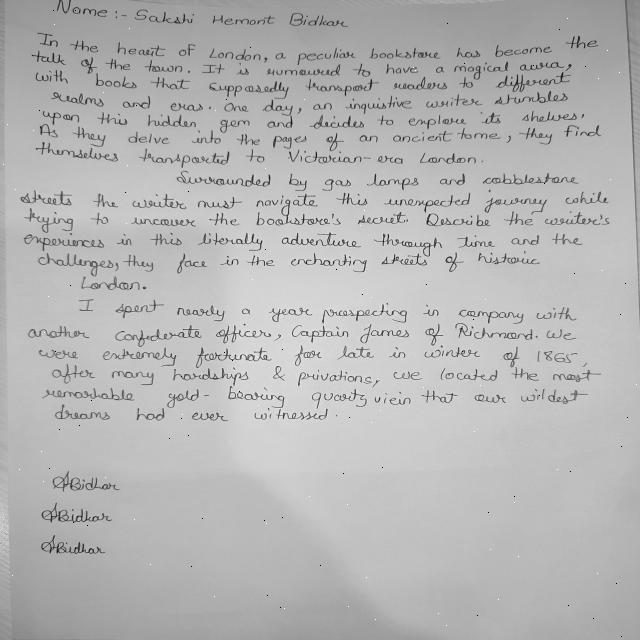 Name :- Sakshi Hemant Bidkar
In the heart of London, a peculiar bookstore has become the
talk of the town. It is rumoured to have a magical aura,
with books that supposedly transport readers to different
realms and eras. One day, an inquistive writer stumbles
upon this hidden gem and decides to explore its shelves.
As they delve into the pages of an ancient tome, they find
themselves transported to Victorian-era London.
Surrounded by gas lamps and cobblestone
streets the writer must navigate this unexpected journey while
trying to uncover the bookstore's secret. Describe the writer's
experiences in this literally adventure through time and the
challenges, they face in the enchanting streets of historic
London.
I spent nearly a year prospecting in company with
another confederate officer, Captain James of Richmond. We
were extremely fortunate for late in winter of 1865,
after many hardships & privations, we located the most
remarkable gold-bearing quartz viein that our wildest
dreams had ever witnessed..
SBidkar
SBidkar
SBidkar